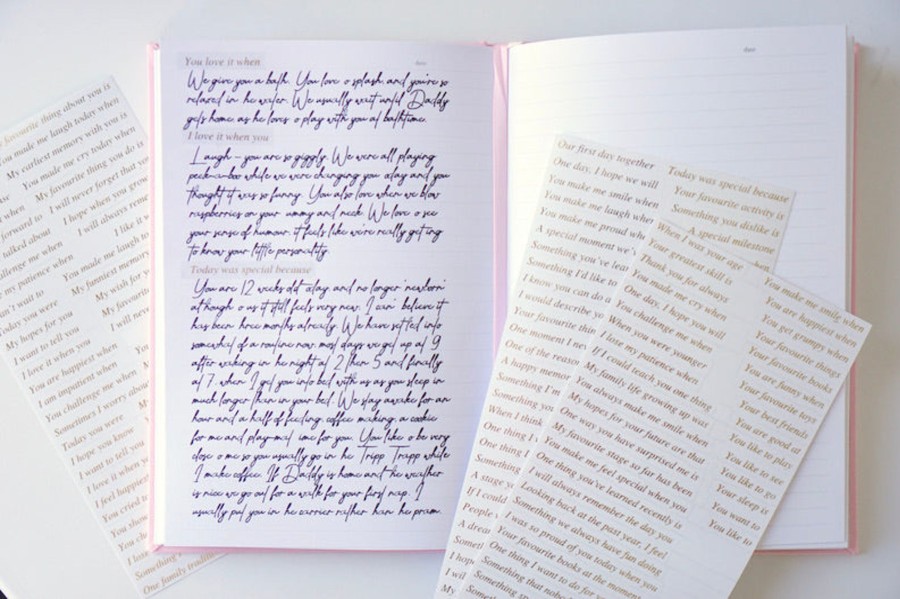 You love it when
date
We give you a bath. You love o splash and you're so
relaxed in he water. We usually wait until Daddy
gets home as he loves o play with you at bathtime.
I love it when you
Laugh - you are so giggly. We were all playing
peek-a-boo while we were changing you oday and you
thought it was so funny. You also love when we blow
raspberries on your ummy and neck. We love o see
your sense of humour, it feels like we're really getting
to know your little personality.
Today was special because
You are 12 weeks old oday and no longer 'newborn'
although o us it still feels very new. I can' believe it
has been hree months already. We have settled into
somewhat of a routine now most days we get up at 9
after waking in he night at 2 then 5 and finally
at 7 when I get you into bed with us as you sleep in
much longer than in your bed. We stay awake for an
hour and a half of feeding, coffee making, a cookie
for me and playmat ime for you. You like o be very
close o me so you usually go in he Tripp Trapp while
I make coffee. If Daddy is home and he weather
is nice we go out for a walk for your first nap. I
usually put you in he carrier rather han he pram.
date
favourite thing about you is
You made me laugh today when
My earliest memory with you is
You made me cry today when
My favourite thing you do is
I will never forget that
I hope when you
I will always
I like it
forward to
talked about
my patience when
You made me laugh
My funniest memory
My wish for
My favourite
I will
Today you were
My hopes for you
I want to tell you
I love it when you
You are happiest when
I am impatient when
You challenge me when
Sometimes I worry about
Today you were
I hope you know
I want to tell you
I love it when
I feel happiest
You cried
You
You
Something
One family
Our first day together
One day, I hope we will
You make me smile when
You make me laugh when
You make me proud
A special moment we
Something you've
Something I'd like to
I know you can do
I would describe
Your favourite
One moment I
One of the
A happy
Something I'm
Something
When I think
One thing I
One thing
Something
A stage
If I could
People
A dream
I hope
I will
My
Today was special because
Your favourite activity is
Something you dislike is
A special milestone
When I was your age
Your greatest skill is
Thank you for always
You made me cry when
One day, I hope you will
You challenge me when
When you were younger
I lose my patience when
If I could teach you one thing
My family life growing up was
You always make me smile when
My hopes for your future are that
One way you have surprised me is
My favourite stage so far has been
You make me feel special when you
One thing you've learned recently is
I will always remember the day you
Looking back at the past year, I feel
Something we always have fun doing
I was so proud of you today when you
Your favourite books at the moment
One thing I want to do for you
Something that
Something
You make me smile when
You are happiest when
You get grumpy when
Your favourite things
Your favourite books
You are funny when
Your favourite toys
Your best friends
You are good at
You like to play
You like to see
You like to go
Your sleep is
You want to
You like to